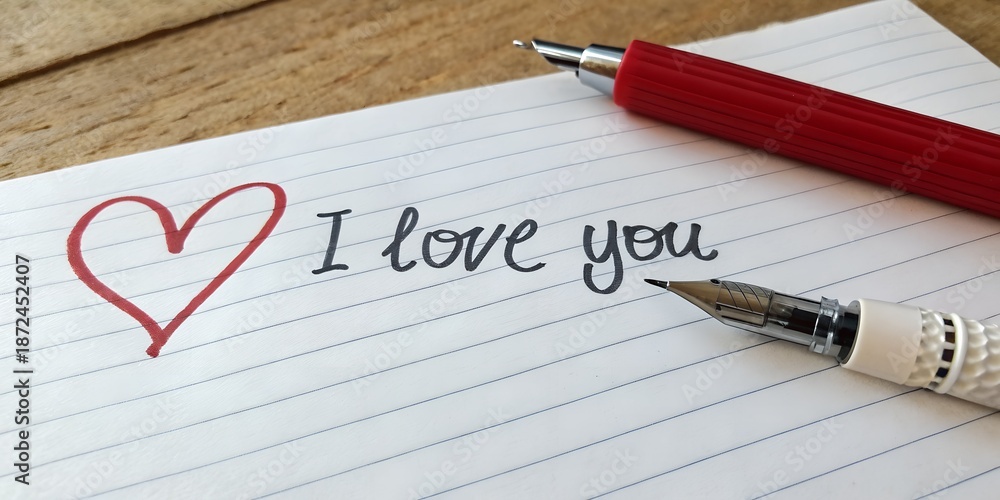 I love you
Adobe Stock | #1872452407